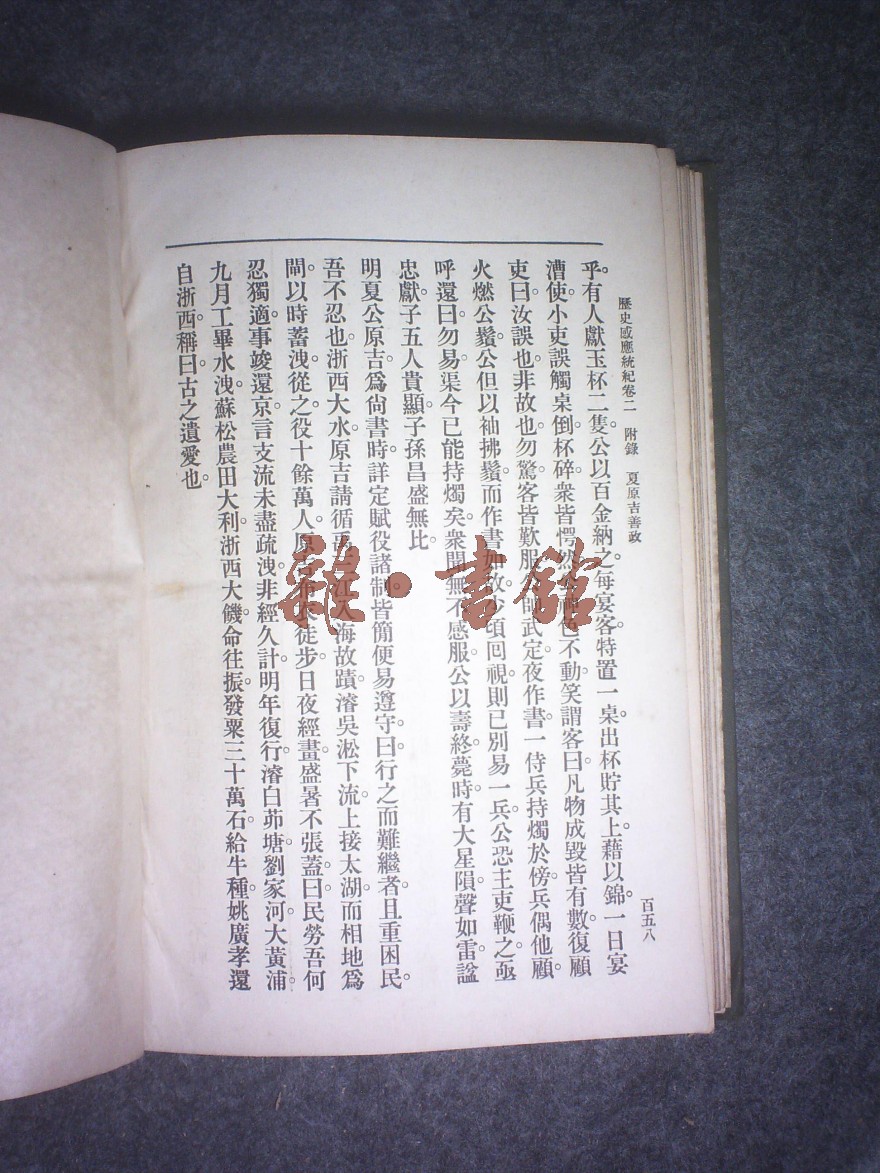 歷史感應統紀卷二 附錄 夏原吉善政
百五八
乎。有人獻玉杯二隻。公以百金納之。每宴客。特置一桌。出杯貯其上。藉以錦。一日宴
漕使。小吏誤觸桌倒。杯碎。衆皆愕然。色不動。笑謂客曰。凡物成毀。皆有數。復顧
吏曰。汝誤也。非故也。勿驚。客皆歎服。師武定。夜作書。一侍兵持燭於傍。兵偶他顧。
火燃公鬚。公但以袖拂鬚。而作書如故。少頃回視。則已別易一兵。公恐主吏鞭之。亟
呼還曰。勿易渠。今已能持燭矣。衆聞無不感服。公以壽終。薨時有大星隕。聲如雷。諡
忠獻。子五人貴顯。子孫昌盛無比。
明夏公原吉爲尙書時。詳定賦役諸制。皆簡便易遵守。曰。行之而難繼者。且重困民。
吾不忍也。浙西大水。原吉請循禹三江入海故蹟。濬吳淞下流。上接太湖。而相地爲
閘。以時蓄洩。從之。役十餘萬人。原吉布衣徒步。日夜經畫。盛暑不張蓋。曰。民勞。吾何
忍獨適。事竣還京。言支流未盡疏洩。非經久計。明年復行。濬白茆塘。劉家河。大黃浦。
九月工畢。水洩。蘇松農田大利。浙西大饑。命往振。發粟三十萬石。給牛種。姚廣孝還
自浙西。稱曰。古之遺愛也。
雜·書館